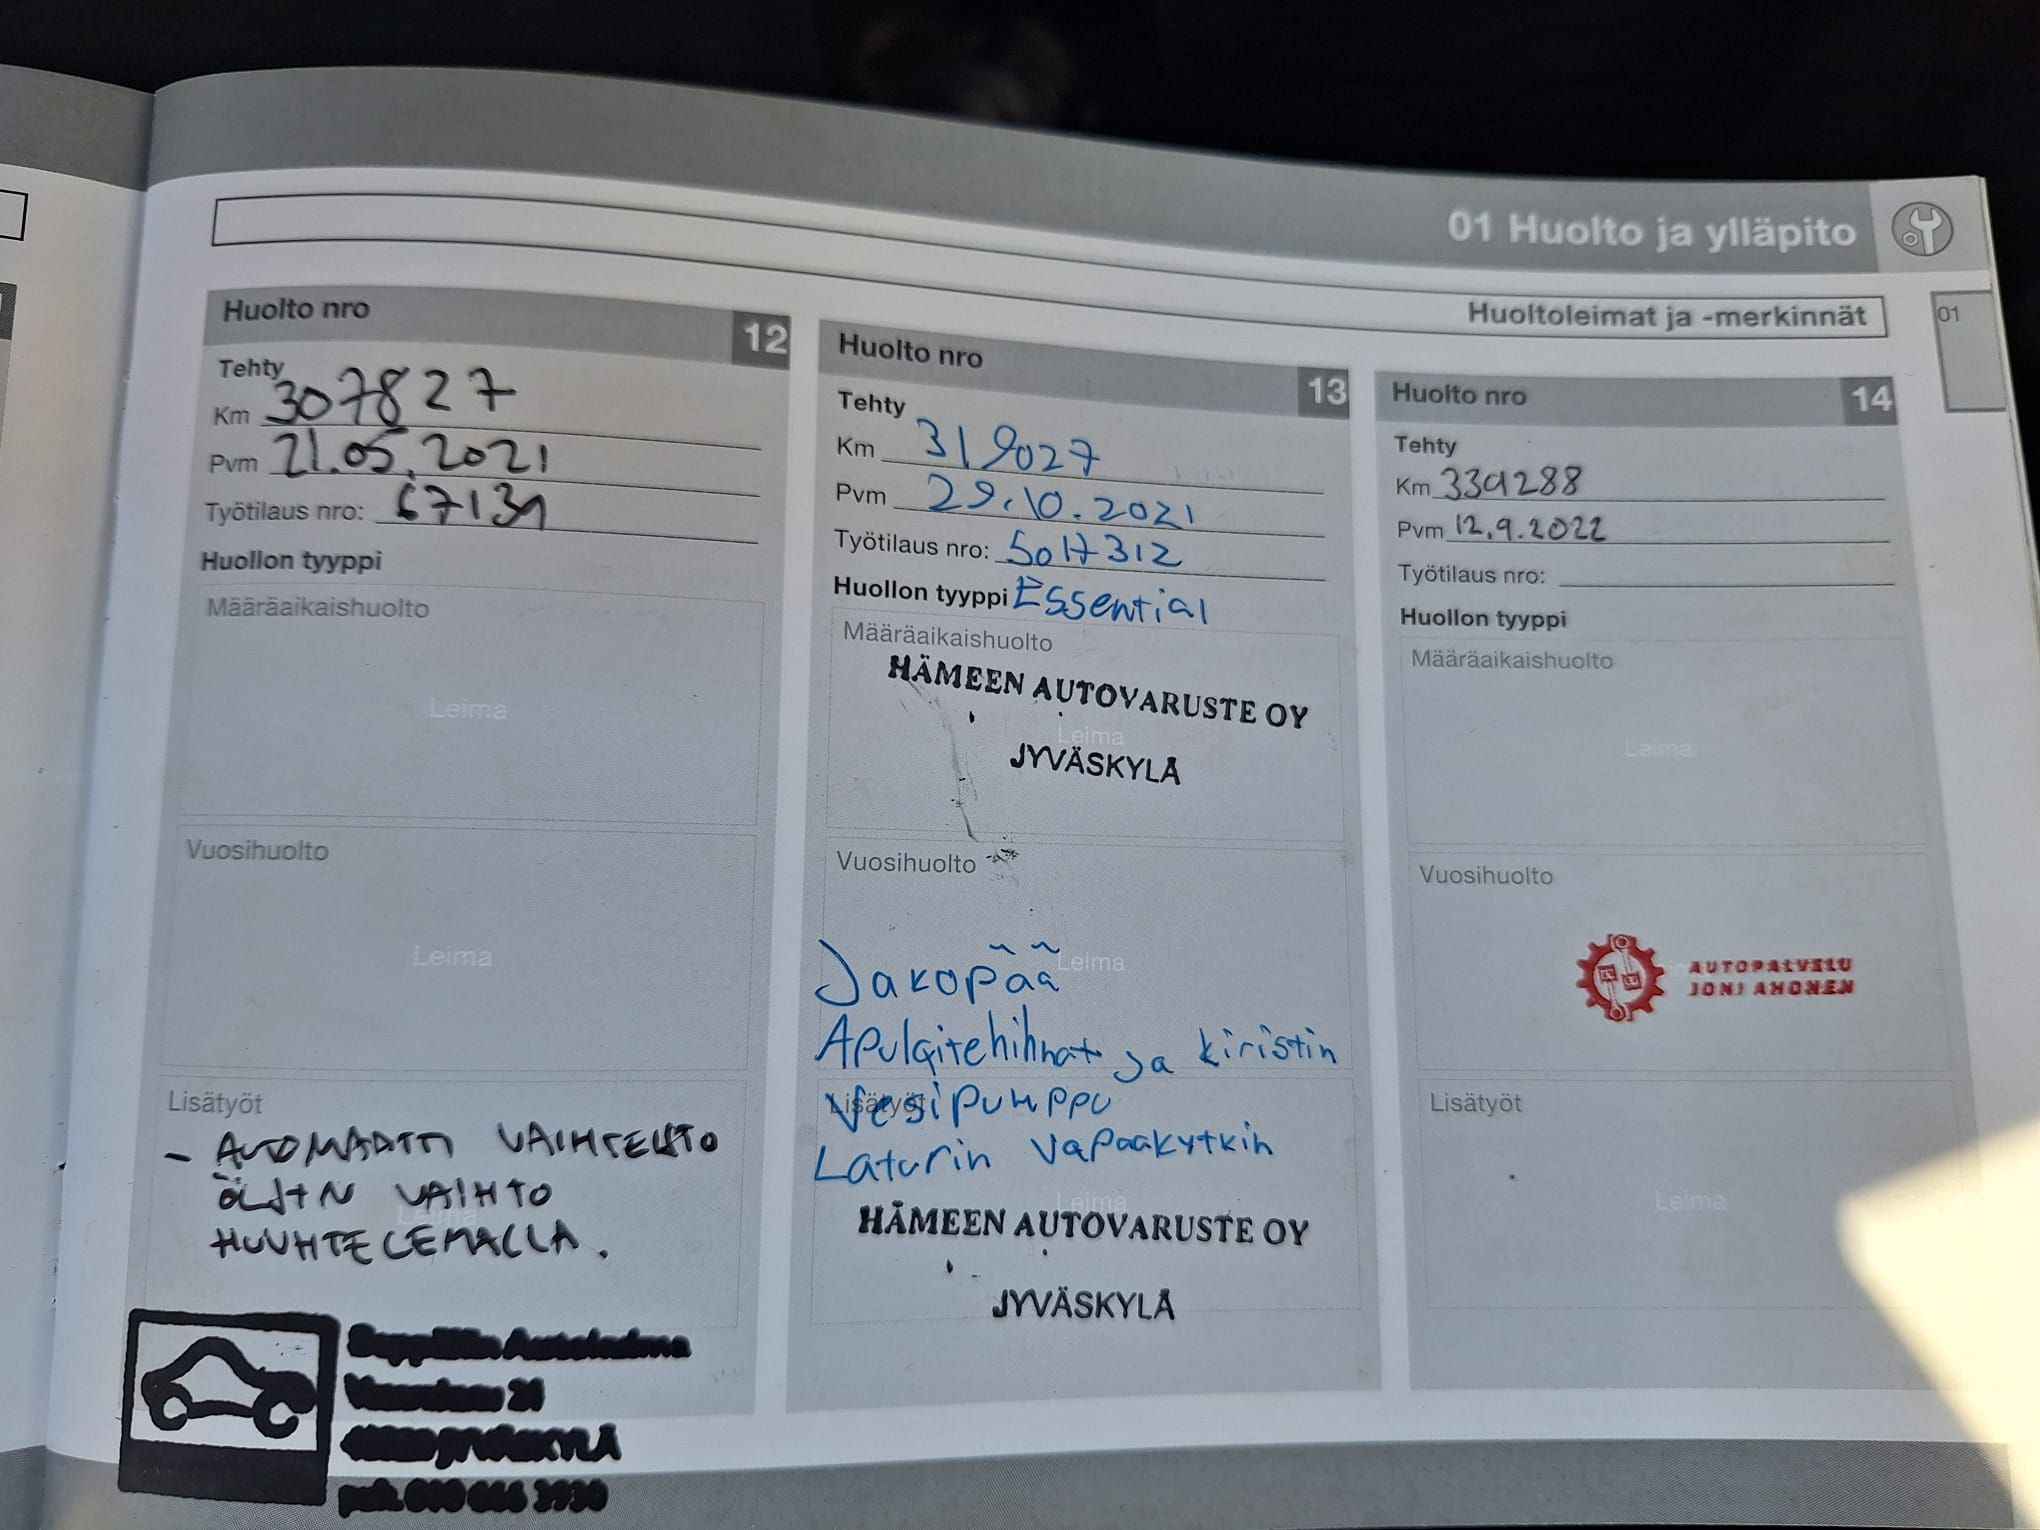 01 Huolto ja ylläpito
Huoltoleimat ja -merkinnät
01
Huolto nro 12
Tehty
Km 307827
Pvm 21.05.2021
Työtilaus nro: 67131
Huollon tyyppi
Määräaikaishuolto
Leima
Vuosihuolto
Leima
Lisätyöt
- AUTOMAATTI VAIHTEISTO
ÖLJYN VAIHTO
HUUHTELEMALLA.
Leima
JYVÄSKYLÄ
Huolto nro 13
Tehty
Km 319027
Pvm 29.10.2021
Työtilaus nro: 5017312
Huollon tyyppi Essential
Määräaikaishuolto
HÄMEEN AUTOVARUSTE OY
Leima
JYVÄSKYLÄ
Vuosihuolto
Leima
Jakopää
Apulaitehihnat ja kiristin
Lisätyöt
Vesipumppu
Laturin vapaakytkin
Leima
HÄMEEN AUTOVARUSTE OY
JYVÄSKYLÄ
Huolto nro 14
Tehty
Km 339288
Pvm 12.9.2022
Työtilaus nro:
Huollon tyyppi
Määräaikaishuolto
Leima
Vuosihuolto
AUTOPALVELU
JONI AHONEN
Lisätyöt
Leima